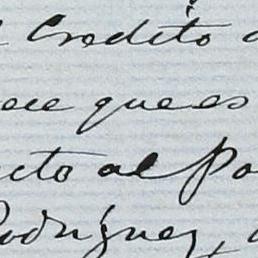 Credito
ece que es
cto al Po
Rodríguez,